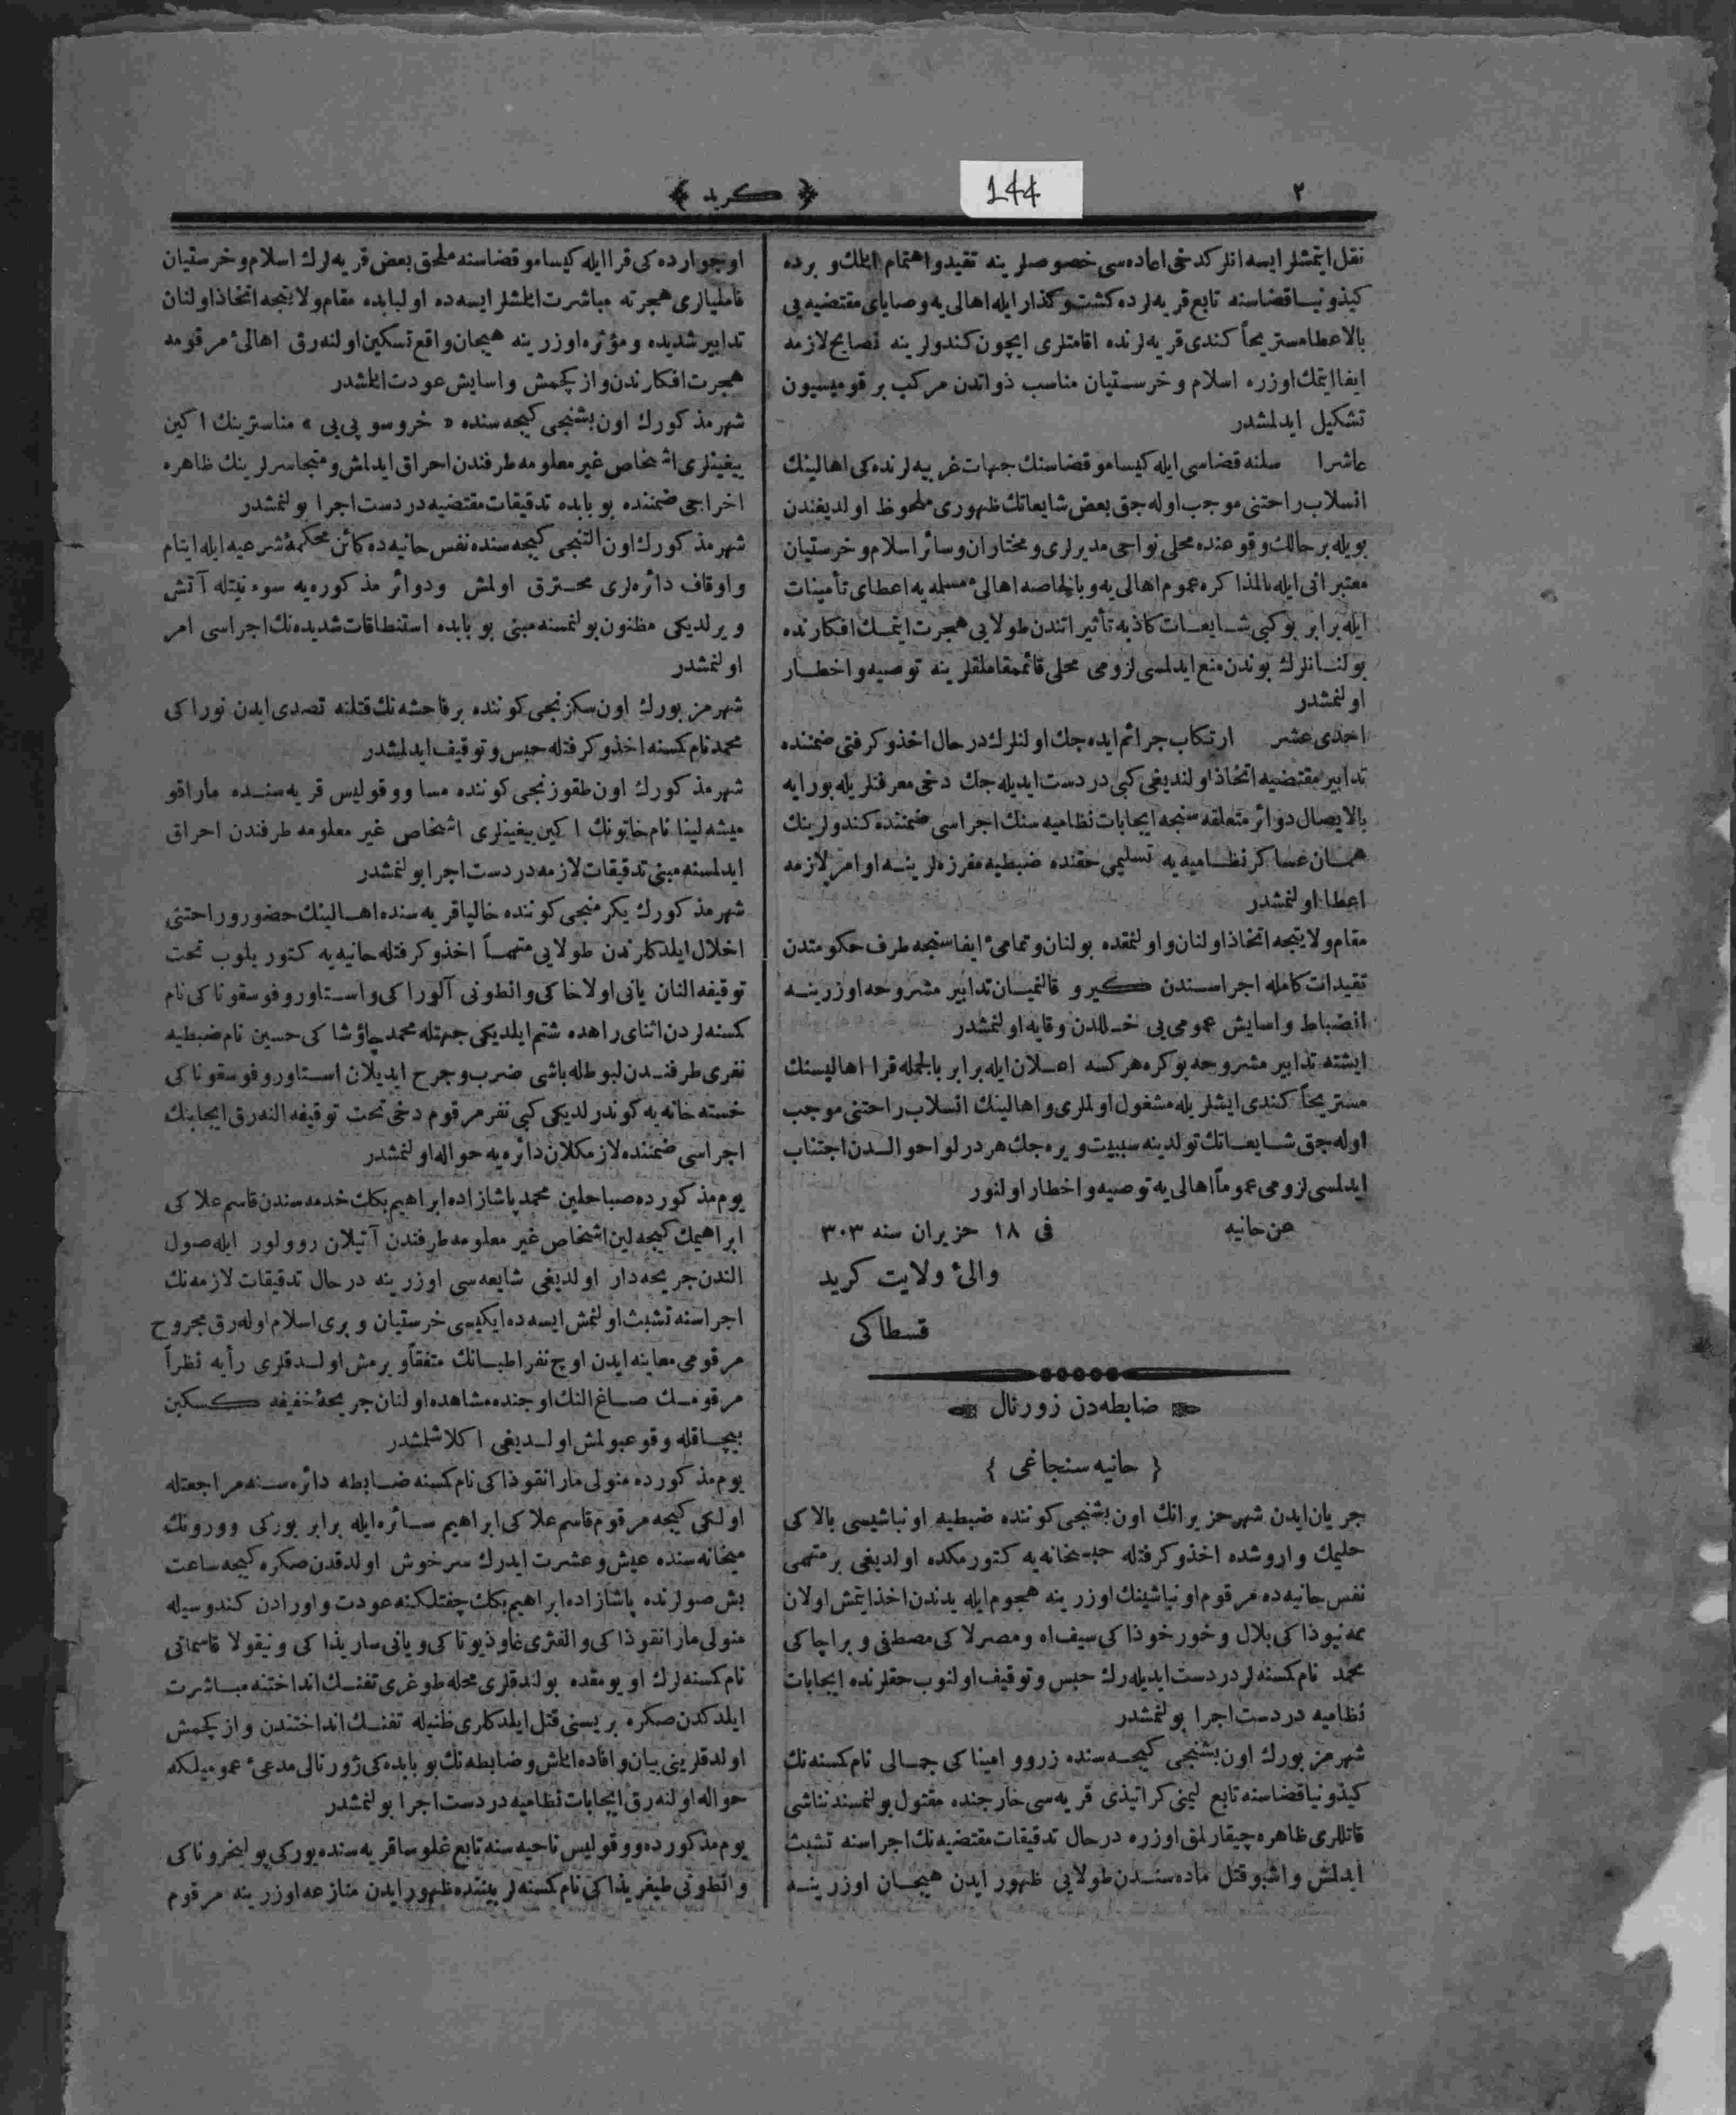 ٢
144
﴿ كريد ﴾
نقل ايتمشلر ايسه انلرك دخى اعاده‌سى خصوصلرينه تقيد و اهتمام ايلمك و برده
كيذونيا قضاسنه تابع قريه‌لرده كشت و كذار ايله اهالى‌يه وصاياى مقتضيه‌يى
بالاعطا مستريحاً كندى قريه‌لرنده اقامتلرى ايچون كندولرينه نصايح لازمه
ايفا ايتمك اوزره اسلام و خرستيان مناسب ذواتدن مركب بر قوميسيون
تشكيل ايدلمشدر
عاشرا سلنه قضاسى ايله كيسامو قضاسنك جهات غربيه‌لرنده‌كى اهالينك
انسلاب راحتنى موجب اوله‌جق بعض شايعاتك ظهورى ملحوظ اولديغندن
بويله بر حالك وقوعنده محلى نواحى مديرلرى و مختاران و سائر اسلام و خرستيان
معتبرانى ايله بالمذاكره عموم اهالى‌يه و بالخاصه اهالئ مسلمه‌يه اعطاى تأمينات
ايله برابر بو كبى شايعات كاذبه تأثيراتندن طولايى هجرت ايتمك افكارنده
بولنانلرك بوندن منع ايدلمسى لزومى محلى قائممقاملقلرينه توصيه و اخطار
اولنمشدر
احدى عشر ارتكاب جرائم ايده‌جك اولنلرك درحال اخذ و كرفتى ضمننده
تدابير مقتضيه اتخاذ اولنديغى كبى دردست ايديله‌جك دخى معرفتلريله بورايه
بالايصال دوائر متعلقه‌سنجه ايجابات نظاميه‌سنك اجراسى ضمننده كندولرينك
همان عساكر نظاميه‌يه تسليمى حقنده ضبطيه مفرزه‌لرينه اوامر لازمه
اعطا اولنمشدر
مقام ولايتجه اتخاذ اولنان و اولنمقده بولنان و تمامئ ايفاسنجه طرف حكومتدن
تقيدات كامله اجراسندن كيرو قالنميان تدابير مشروحه اوزرينه
انضباط و اسايش عمومى‌يى خللدن وقايه اولنمشدر
ايشته تدابير مشروحه بو كره هركسه اعلان ايله برابر بالجمله قرا اهاليسنك
مستريحاً كندى ايشلريله مشغول اولملرى و اهالينك انسلاب راحتنى موجب
اوله‌جق شايعاتك تولدينه سببيت ويره‌جك هر درلو احوالدن اجتناب
ايدلمسى لزومى عموماً اهالى‌يه توصيه و اخطار اولنور
عن حانيه فى ١٨ حزيران سنه ٣٠٣
والئ ولايت كريد
قسطاكى
ضابطه‌دن زورنال
{ حانيه سنجاغى }
جريان ايدن شهر حزيرانك اون بشنجى كوننده ضبطيه اونباشيسى بالاكى
حليمك واروشده اخذ و كرفتله حبسخانه‌يه كتورمكده اولديغى بر متهمى
نفس حانيه‌ده مرقوم اونباشينك اوزرينه هجوم ايله يدندن اخذ ايتمش اولان
ممه‌نيوذاكى بلال و خورخوذاكى سيف‌اه و مصرلاكى مصطفى و براچاكى
محمد نام كسنه‌لر دردست ايديله‌رك حبس و توقيف اولنوب حقلرنده ايجابات
نظاميه دردست اجرا بولنمشدر
شهر مزبورك اون بشنجى كيجه‌سنده زروو اميناكى جمالى نام كسنه‌نك
كيذونيا قضاسنه تابع ليمنى كراتيذى قريه‌سى خارجنده مقتول بولنمسندن ناشى
قاتللرى ظاهره چيقارلمق اوزره درحال تدقيقات مقتضيه‌نك اجراسنه تشبث
ايدلمش و اشبو قتل ماده‌سندن طولايى ظهور ايدن هيجان اوزرينه
او جوارده‌كى قرا ايله كيسامو قضاسنه ملحق بعض قريه‌لرك اسلام و خرستيان
فاميليالرى هجرته مباشرت ايلمشلر ايسه‌ده اولبابده مقام ولايتجه اتخاذ اولنان
تدابير شديده و مؤثره اوزرينه هيجان واقع تسكين اولنه‌رق اهالئ مرقومه
هجرت افكارندن واز كچمش و اسايش عودت ايلمشدر
شهر مذكورك اون بشنجى كيجه‌سنده « خروسو پى‌يى » مناسترينك اكين
ييغينلرى اشخاص غير معلومه طرفندن احراق ايدلمش و متجاسرلرينك ظاهره
اخراجى ضمننده بو بابده تدقيقات مقتضيه دردست اجرا بولنمشدر
شهر مذكورك اون التنجى كيجه‌سنده نفس حانيه‌ده كائن محكمۀ شرعيه ايله ايتام
و اوقاف دائره‌لرى محترق اولمش ودوائر مذكوره‌يه سوء نيتله آتش
ويرلديكى مظنون بولنمسنه مبنى بو بابده استنطاقات شديده‌نك اجراسى امر
اولنمشدر
شهر مزبورك اون سكزنجى كوننده بر فاحشه‌نك قتلنه تصدى ايدن نوراكى
محمد نام كسنه اخذ و كرفتله حبس و توقيف ايدلمشدر
شهر مذكورك اون طقوزنجى كوننده مسا ووقوليس قريه‌سنده ماراقو
ميشه‌لينا نام خاتونك اكين ييغينلرى اشخاص غير معلومه طرفندن احراق
ايدلمسنه مبنى تدقيقات لازمه دردست اجرا بولنمشدر
شهر مذكورك يكرمنجى كوننده خالپا قريه‌سنده اهالينك حضور و راحتنى
اخلال ايلدكلرندن طولايى متهماً اخذ و كرفتله حانيه‌يه كتوريلوب تحت
توقيفه النان يانى اولاخاكى و انطونى آلوراكى و استاورو فوسقوناكى نام
كسنه‌لردن اثناى راهده شتم ايلديكى جهتله محمد چاؤشاكى حسين نام ضبطيه
نفرى طرفندن لبوطله باشى ضرب و جرح ايديلان استاورو فوسقوناكى
خسته‌خانه‌يه كوندرلديكى كبى نفر مرقوم دخى تحت توقيفه النه‌رق ايجابنك
اجراسى ضمننده لازمكلان دائره‌يه حواله اولنمشدر
يوم مذكورده صباحلين محمد پاشازاده ابراهيم بكك خدمه‌سندن قاسم علاكى
ابراهيمك كيجه‌لين اشخاص غير معلومه طرفندن آتيلان روولور ايله صول
الندن جريحه‌دار اولديغى شايعه‌سى اوزرينه درحال تدقيقات لازمه‌نك
اجراسنه تشبث اولنمش ايسه‌ده ايكيسى خرستيان و برى اسلام اوله‌رق مجروح
مرقومى معاينه ايدن اوچ نفر اطبانك متفقاً ويرمش اولدقلرى رأيه نظراً
مرقومك صاغ النك اوجنده مشاهده اولنان جريحۀ خفيفه كسكين
بيچاقله وقوعبولمش اولديغى اكلاشلمشدر
يوم مذكورده منولى مارانقوذاكى نام كسنه ضابطه دائره‌سنه مراجعتله
اولكى كيجه مرقوم قاسم علاكى ابراهيم سائره ايله برابر يوركى وورونك
ميخانه‌سنده عيش و عشرت ايدرك سرخوش اولدقدن صكره كيجه ساعت
بش صولرنده پاشازاده ابراهيم بكك چفتلكنه عودت و اورادن كندوسيله
منولى مارانقوذاكى و الفترى غاوذيوناكى و يانى ساريذاكى و نيقولا قاسماتى
نام كسنه‌لرك اويومقده بولندقلرى محله طوغرى تفنك انداختنه مباشرت
ايلدكدن صكره بريسنى قتل ايلدكلرى ظنيله تفنك انداختندن واز كچمش
اولدقلرينى بيان و افاده ايلمش و ضابطه‌نك بو بابده‌كى ژورنالى مدعئ عموميلكه
حواله اولنه‌رق ايجابات نظاميه دردست اجرا بولنمشدر
يوم مذكورده ووقوليس ناحيه‌سنه تابع غلوسا قريه‌سنده يوركى پولينخروناكى
و انطونى طيغريذاكى نام كسنه‌لر بيننده ظهور ايدن منازعه اوزرينه مرقوم